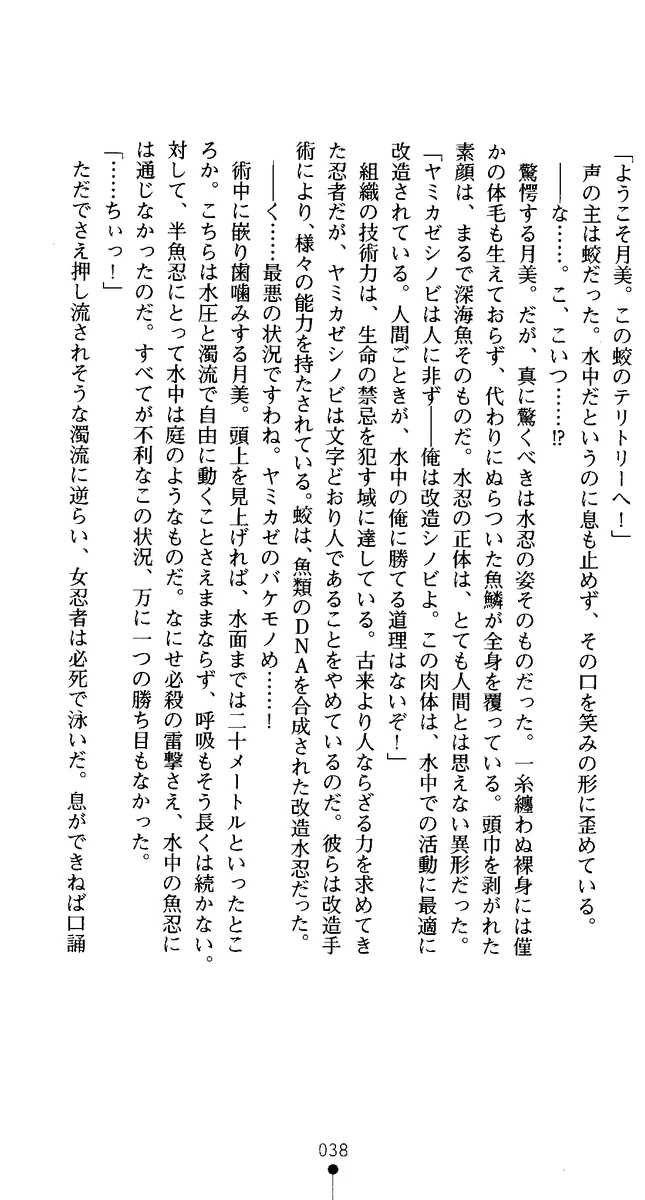 「ようこそ月美。この蛟のテリトリーへ！」
声の主は蛟だった。水中だというのに息も止めず、その口を笑みの形に歪めている。
――な……。こ、こいつ……⁉
驚愕する月美。だが、真に驚くべきは水忍の姿そのものだった。一糸纏わぬ裸身には僅
かの体毛も生えておらず、代わりにぬらついた魚鱗が全身を覆っている。頭巾を剥がれた
素顔は、まるで深海魚そのものだ。水忍の正体は、とても人間とは思えない異形だった。
「ヤミカゼシノビは人に非ず――俺は改造シノビよ。この肉体は、水中での活動に最適に
改造されている。人間ごときが、水中の俺に勝てる道理はないぞ！」
組織の技術力は、生命の禁忌を犯す域に達している。古来より人ならざる力を求めてき
た忍者だが、ヤミカゼシノビは文字どおり人であることをやめているのだ。彼らは改造手
術により、様々の能力を持たされている。蛟は、魚類のDNAを合成された改造水忍だった。
――く……最悪の状況ですわね。ヤミカゼのバケモノめ……！
術中に嵌り歯噛みする月美。頭上を見上げれば、水面までは二十メートルといったとこ
ろか。こちらは水圧と濁流で自由に動くことさえままならず、呼吸もそう長くは続かない。
対して、半魚忍にとって水中は庭のようなものだ。なにせ必殺の雷撃さえ、水中の魚忍に
は通じなかったのだ。すべてが不利なこの状況、万に一つの勝ち目もなかった。
「……ちぃっ！」
ただでさえ押し流されそうな濁流に逆らい、女忍者は必死で泳いだ。息ができねば口誦
038